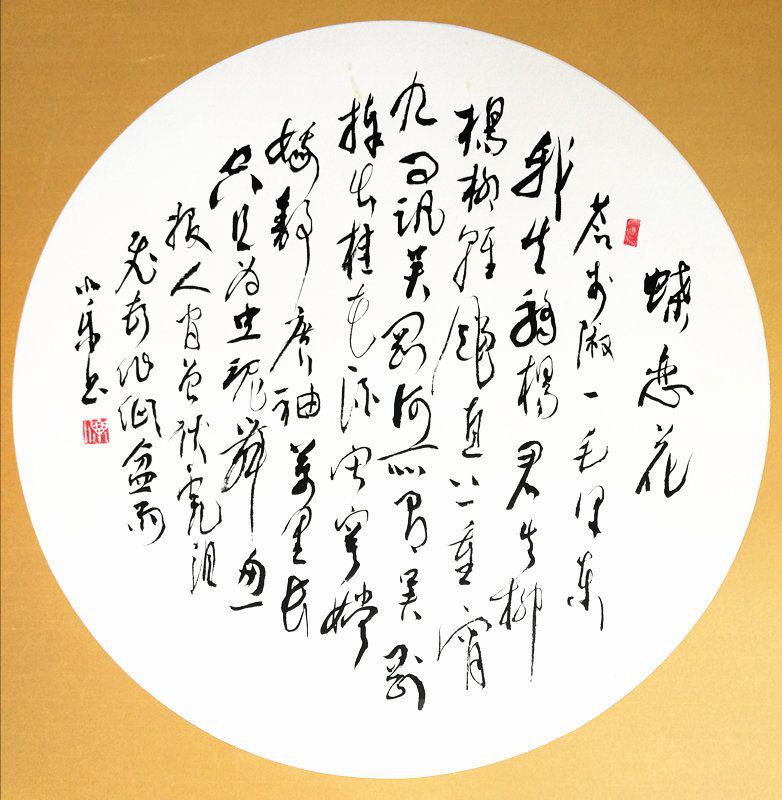 蝶恋花
答李淑一毛泽东
我失骄楊君失柳
楊柳轻飏直上重霄
九问訊吴刚何所有吴刚
捧出桂花酒寂寞嫦
娥舒廣袖萬里长
空且为忠魂舞忽
报人间曾伏虎泪
飞顿作倾盆雨